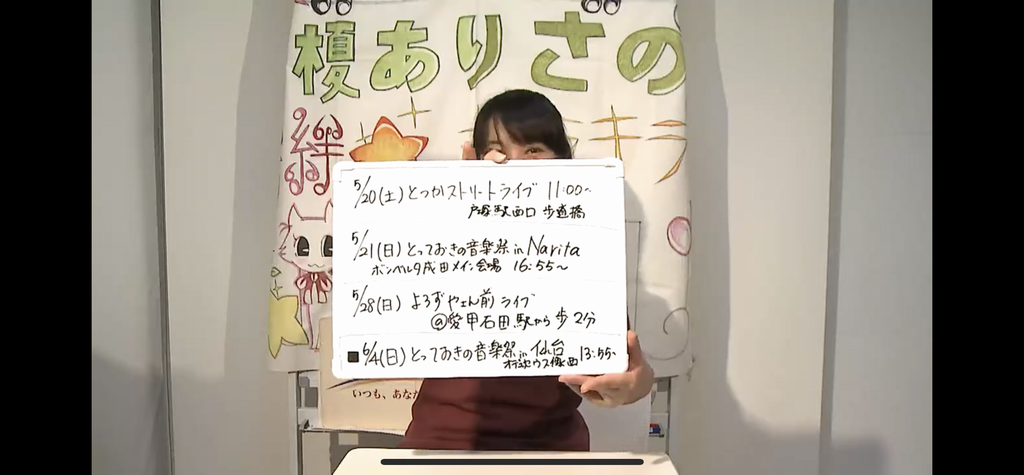 榎ありさの
絆
キラ
5/20(土)とつかストリートライブ 11:00〜
戸塚駅西口 歩道橋
5/21(日)とっておきの音楽祭 in Narita
ボンベルタ成田メイン会場 16:55〜
5/28(日) よろずやさん前 ライブ
@愛甲石田駅から 歩2分
■6/4(日)とっておきの音楽祭 in 仙台
13:55〜
いつも、あなた